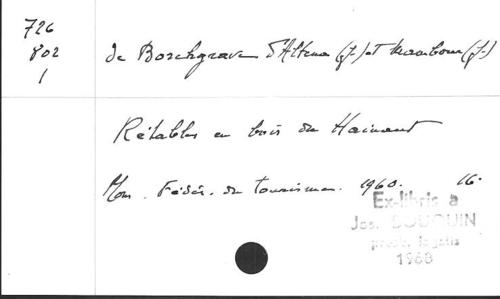 726
802
1
de Borchgrave d'Altena (J.) et Mambour (J.)
Retables en bois du Hainaut
Mons. Fédér. du tourisme. 1960. 16.
Ex-libris a
Jos. BOUQUIN
presb. legatis
1968